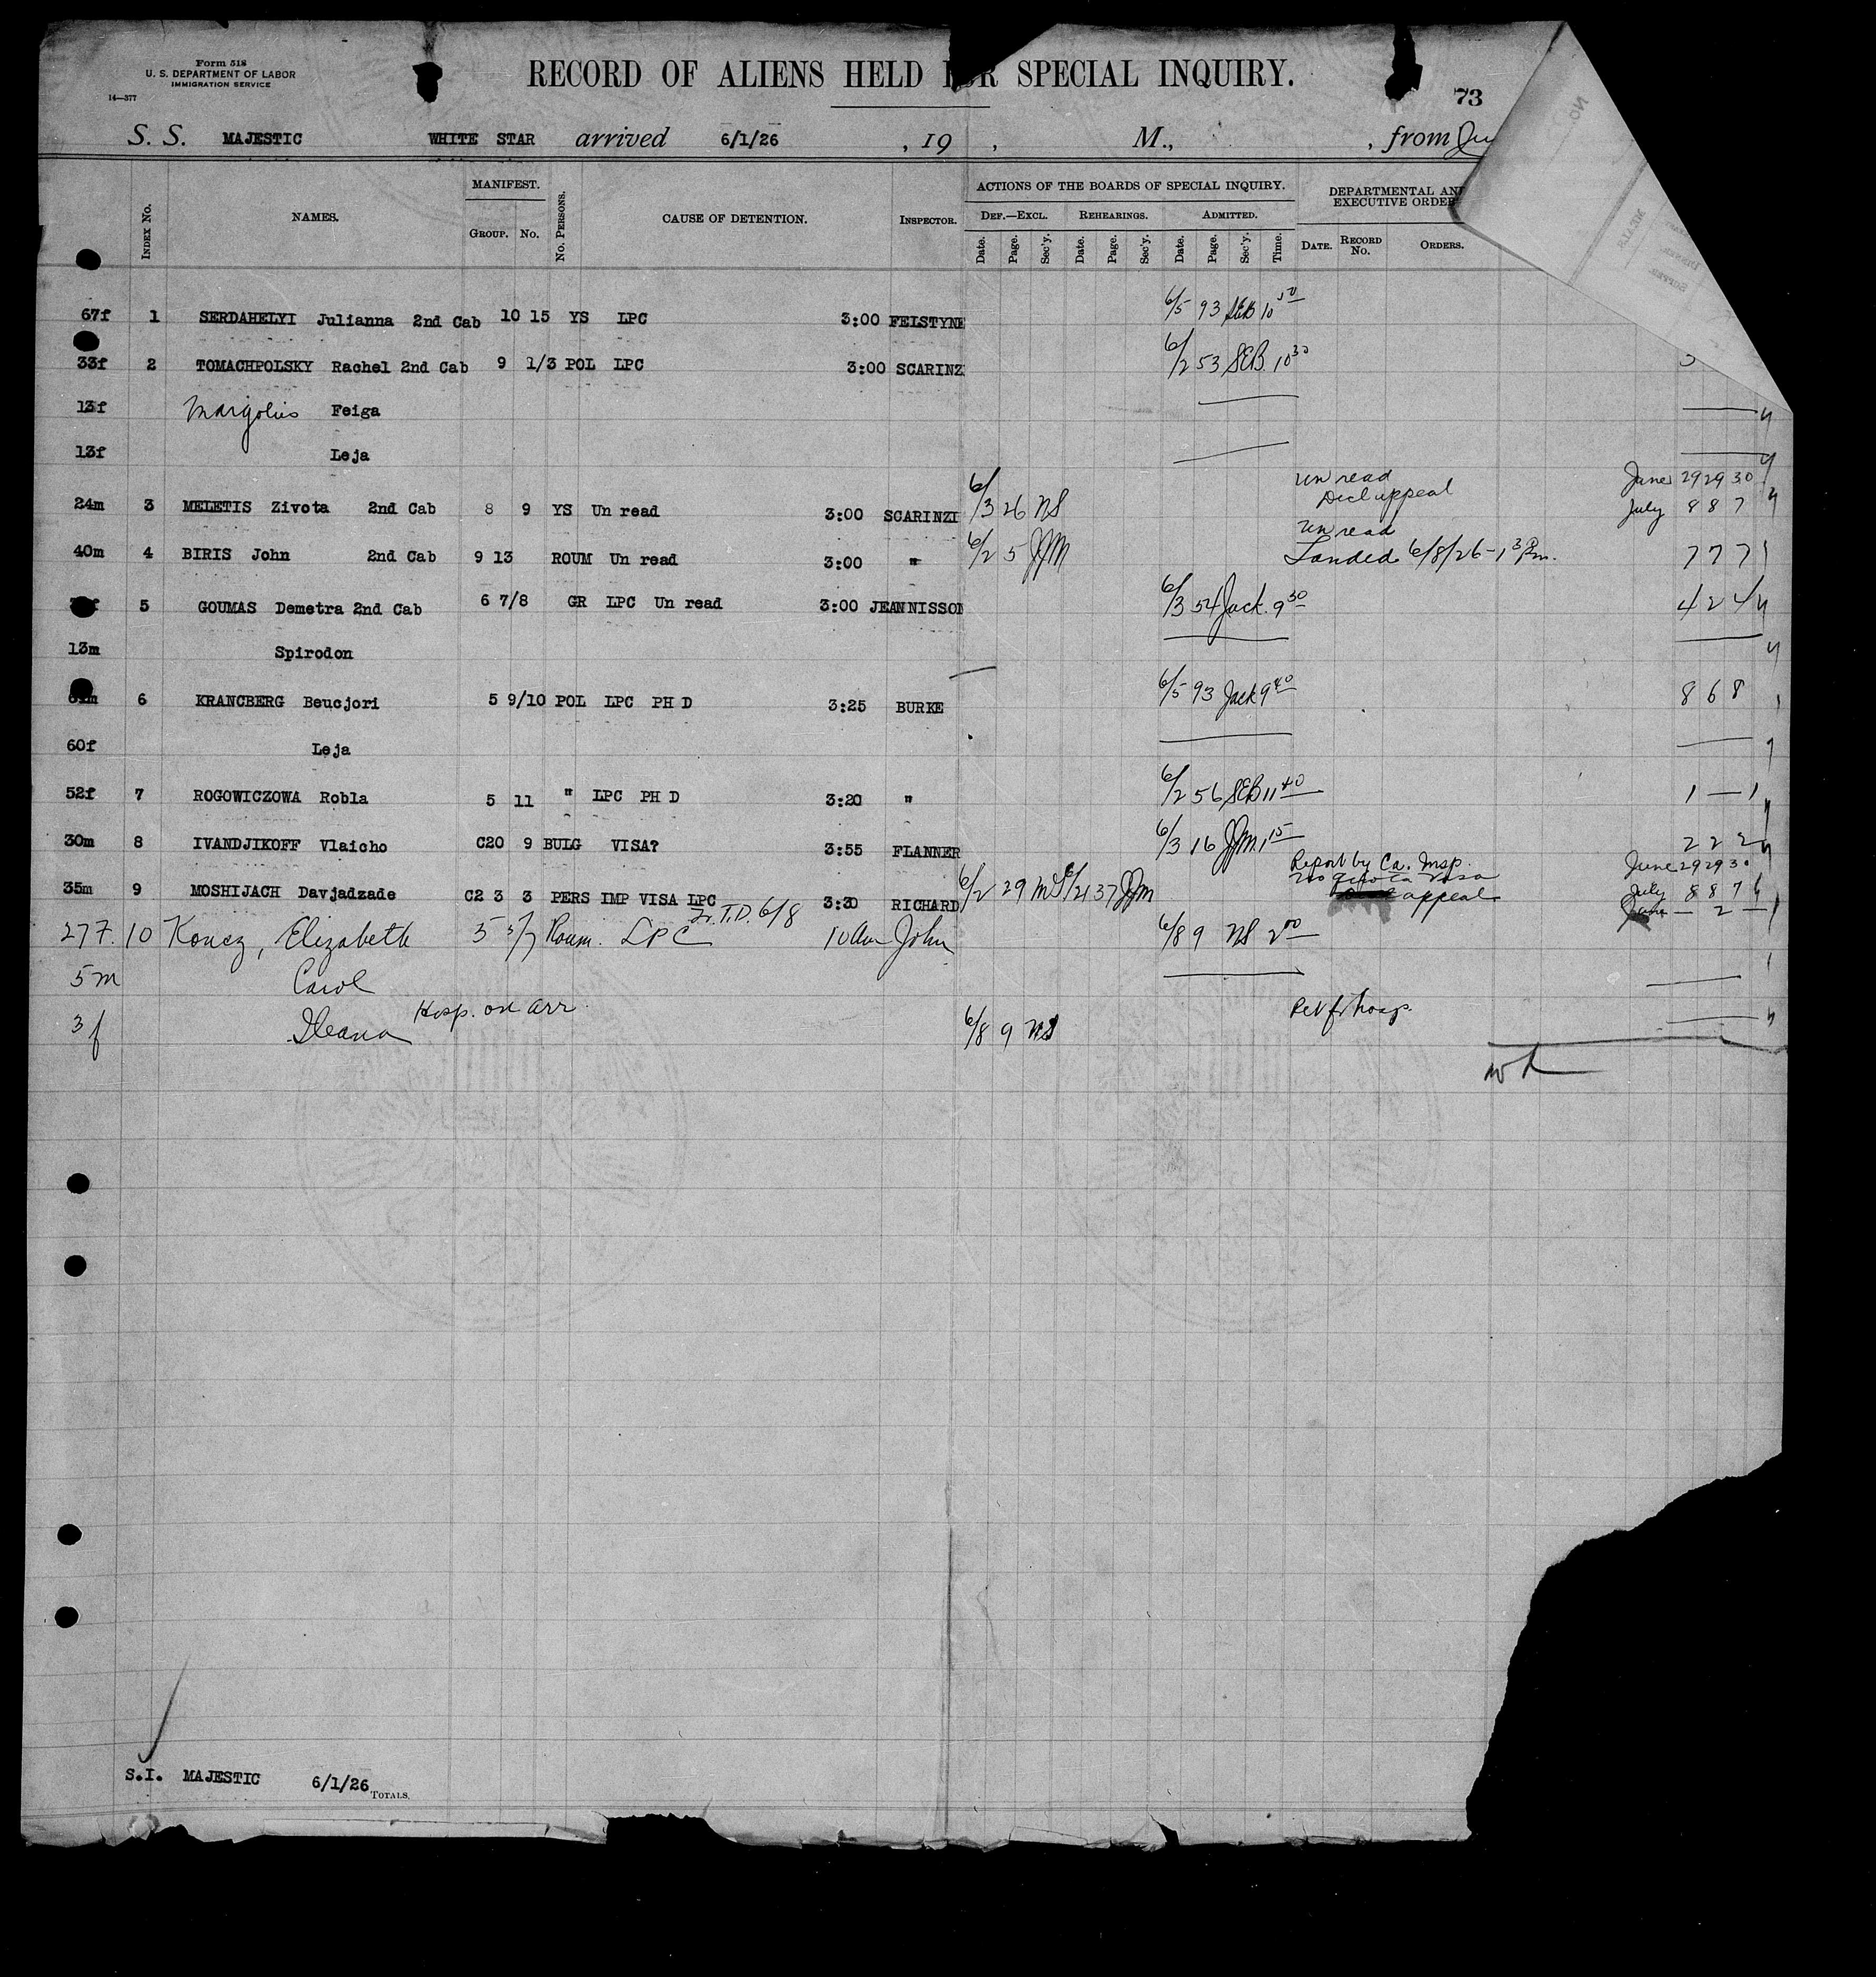 Form 518
U. S. DEPARTMENT OF LABOR
IMMIGRATION SERVICE
14—377
RECORD OF ALIENS HELD SPECIAL INQUIRY.
73
S. S. MAJESTIC WHITE STAR arrived 6/1/26 , 19 , M., , from
INDEX No. NAMES. MANIFEST. GROUP. No. No. PERSONS. CAUSE OF DETENTION. INSPECTOR. ACTIONS OF THE BOARDS OF SPECIAL INQUIRY. DEF.—EXCL. REHEARINGS. ADMITTED. DEPARTMENTAL AND EXECUTIVE ORDER
Date. Page. Sec'y. Date. Page. Sec'y. Date. Page. Sec'y. Time. DATE. RECORD No. ORDERS.
67f 1 SERDAHELYI Julianna 2nd Cab 10 15 YS LPC 3:00 FELSTYNE 6/5 93 SEB 10 50
33f 2 TOMACHPOLSKY Rachel 2nd Cab 9 1/3 POL LPC 3:00 SCARINZ 6/2 53 SEB 10 30
13f Margolius Feiga
13f Leja
24m 3 MELETIS Zivota 2nd Cab 8 9 YS Un read 3:00 SCARINZI 6/3 26 NS Un read Decl appeal June 29 29 30 July 8 8 7
40m 4 BIRIS John 2nd Cab 9 13 ROUM Un read 3:00 " 6/2 5 JJM Un read Landed 6/8/26 - 1 3 Pm. 7 7 7
5 GOUMAS Demetra 2nd Cab 6 7/8 GR LPC Un read 3:00 JEANNISSON 6/3 54 Jack. 9 30 4 2 4
13m Spirodon
6 KRANCBERG Beucjori 5 9/10 POL LPC PH D 3:25 BURKE 6/5 93 Jack 9 40 8 6 8
60f Leja
52f 7 ROGOWICZOWA Robla 5 11 " LPC PH D 3:20 " 6/2 56 SEB 11 40 1 — 1
30m 8 IVANDJIKOFF Vlaicho C20 9 BULG VISA? 3:55 FLANNER 6/3 16 JJM 1 15 2 2 2
35m 9 MOSHIJACH Davjadzade C2 3 3 PERS IMP VISA LPC 3:30 RICHARD 6/2 29 MS 6/21 37 JJM Report by Ca. Insp. No Quota Visa appeal June 29 29 30 July 8 8 7
27f. 10 Koncz, Elizabeth 5 3/7 Roum. LPC Fr. T.D. 6/8 10 am John 6/8 9 NS 2 00
5m Carol
3f Ileana Hosp. on arr. 6/8 9 NS Ret fr hosp.
S.I. MAJESTIC 6/1/26 TOTALS.